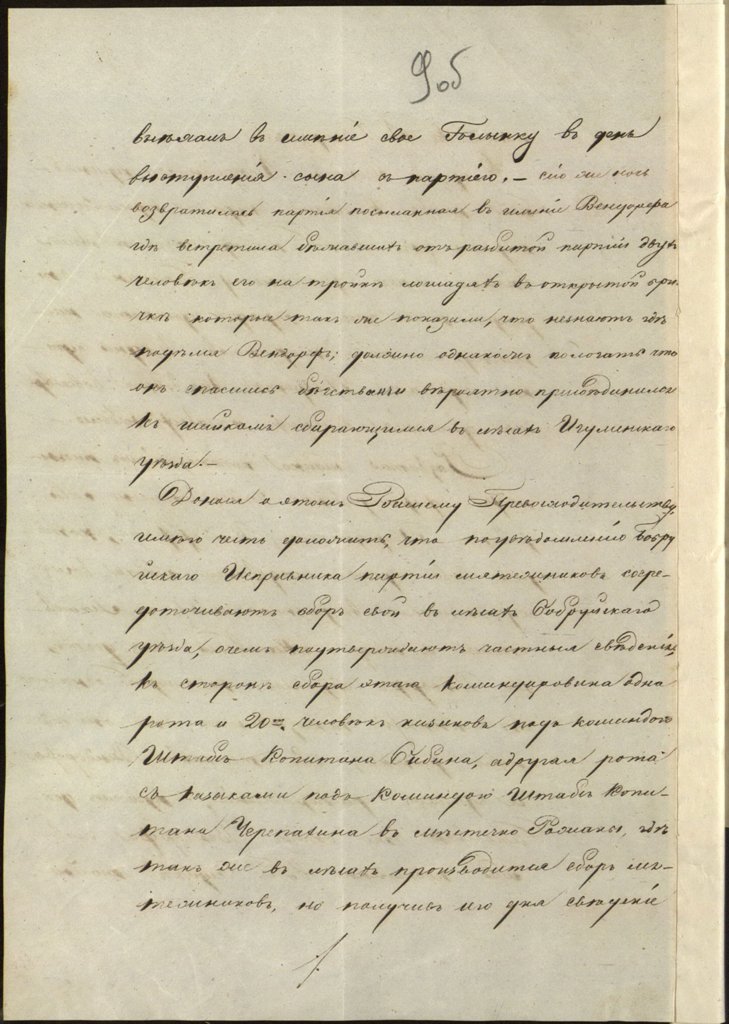 9об
выехалъ въ имѣніе свое Голынку въ день
выступленія сына съ партіею. — сію же ночь
возвратилась партія посыланная въ имѣніе Вендорфа
гдѣ встретила бѣжавшихъ отъ разбитой партіи двухъ
человѣкъ его на тройкѣ лошадяхъ въ открытой бри-
чкѣ которыя такъ же показали, что незнаютъ гдѣ
подѣлся Вендорфъ; должно однакожъ пологать что
онъ спасшись бѣгствомъ вѣроятно присоединился
къ шайкамъ сбирающимся въ лѣсахъ Игуменскаго
уѣзда. —
Донося о этомъ Вашему Превосходительству,
имѣю честь дополнить, что по увѣдомленію Бобру
йскаго Исправника партіи мятежниковъ сосре-
доточиваютъ сборъ свой въ лѣсахъ Бобруйскаго
уѣзда, о чемъ подтверждаютъ частныя свѣденія,
къ сторонѣ сбора этаго командирована одна
рота и 20 человѣкъ казаковъ подъ командою
Штабсъ Копитана Сибина, а другая рота
съ казаками подъ Командою Штабсъ Копи-
тана Черепахина въ мѣстечко
такъ же въ лѣсахъ производится сборъ мя-
тежниковъ, но получивъ сего дня свѣденіе